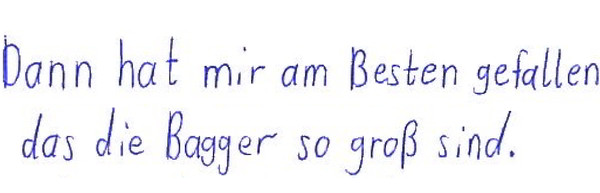 Dann hat mir am Besten gefallen
das die Bagger so groß sind.